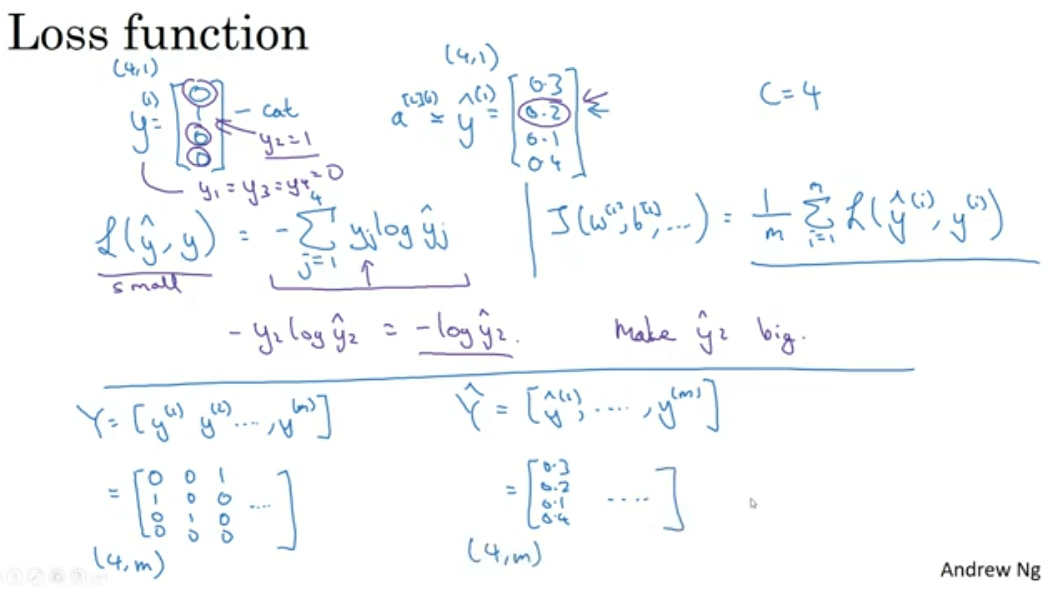 Loss function
(4,1)
y⁽¹⁾ = [0 1 0 0] - cat
y₂=1
y₁ = y₃ = y₄ = 0
(4,1)
a^[L](1) ≅ ŷ⁽¹⁾ = [0.3 0.2 0.1 0.4]
C=4
L(ŷ, y) = -∑_{j=1}^{4} yⱼ log ŷⱼ
small
J(w^[1], b^[1], ...) = 1/m ∑_{i=1}^{m} L(ŷ⁽ⁱ⁾, y⁽ⁱ⁾)
- y₂ log ŷ₂ = - log ŷ₂. Make ŷ₂ big.
Y = [y⁽¹⁾ y⁽²⁾ ...., y⁽ᵐ⁾]
= [0 0 1
1 0 0 ....
0 1 0
0 0 0]
(4,m)
Ŷ = [ŷ⁽¹⁾, ...., y⁽ᵐ⁾]
= [0.3
0.2
0.1 ....
0.4]
(4,m)
Andrew Ng